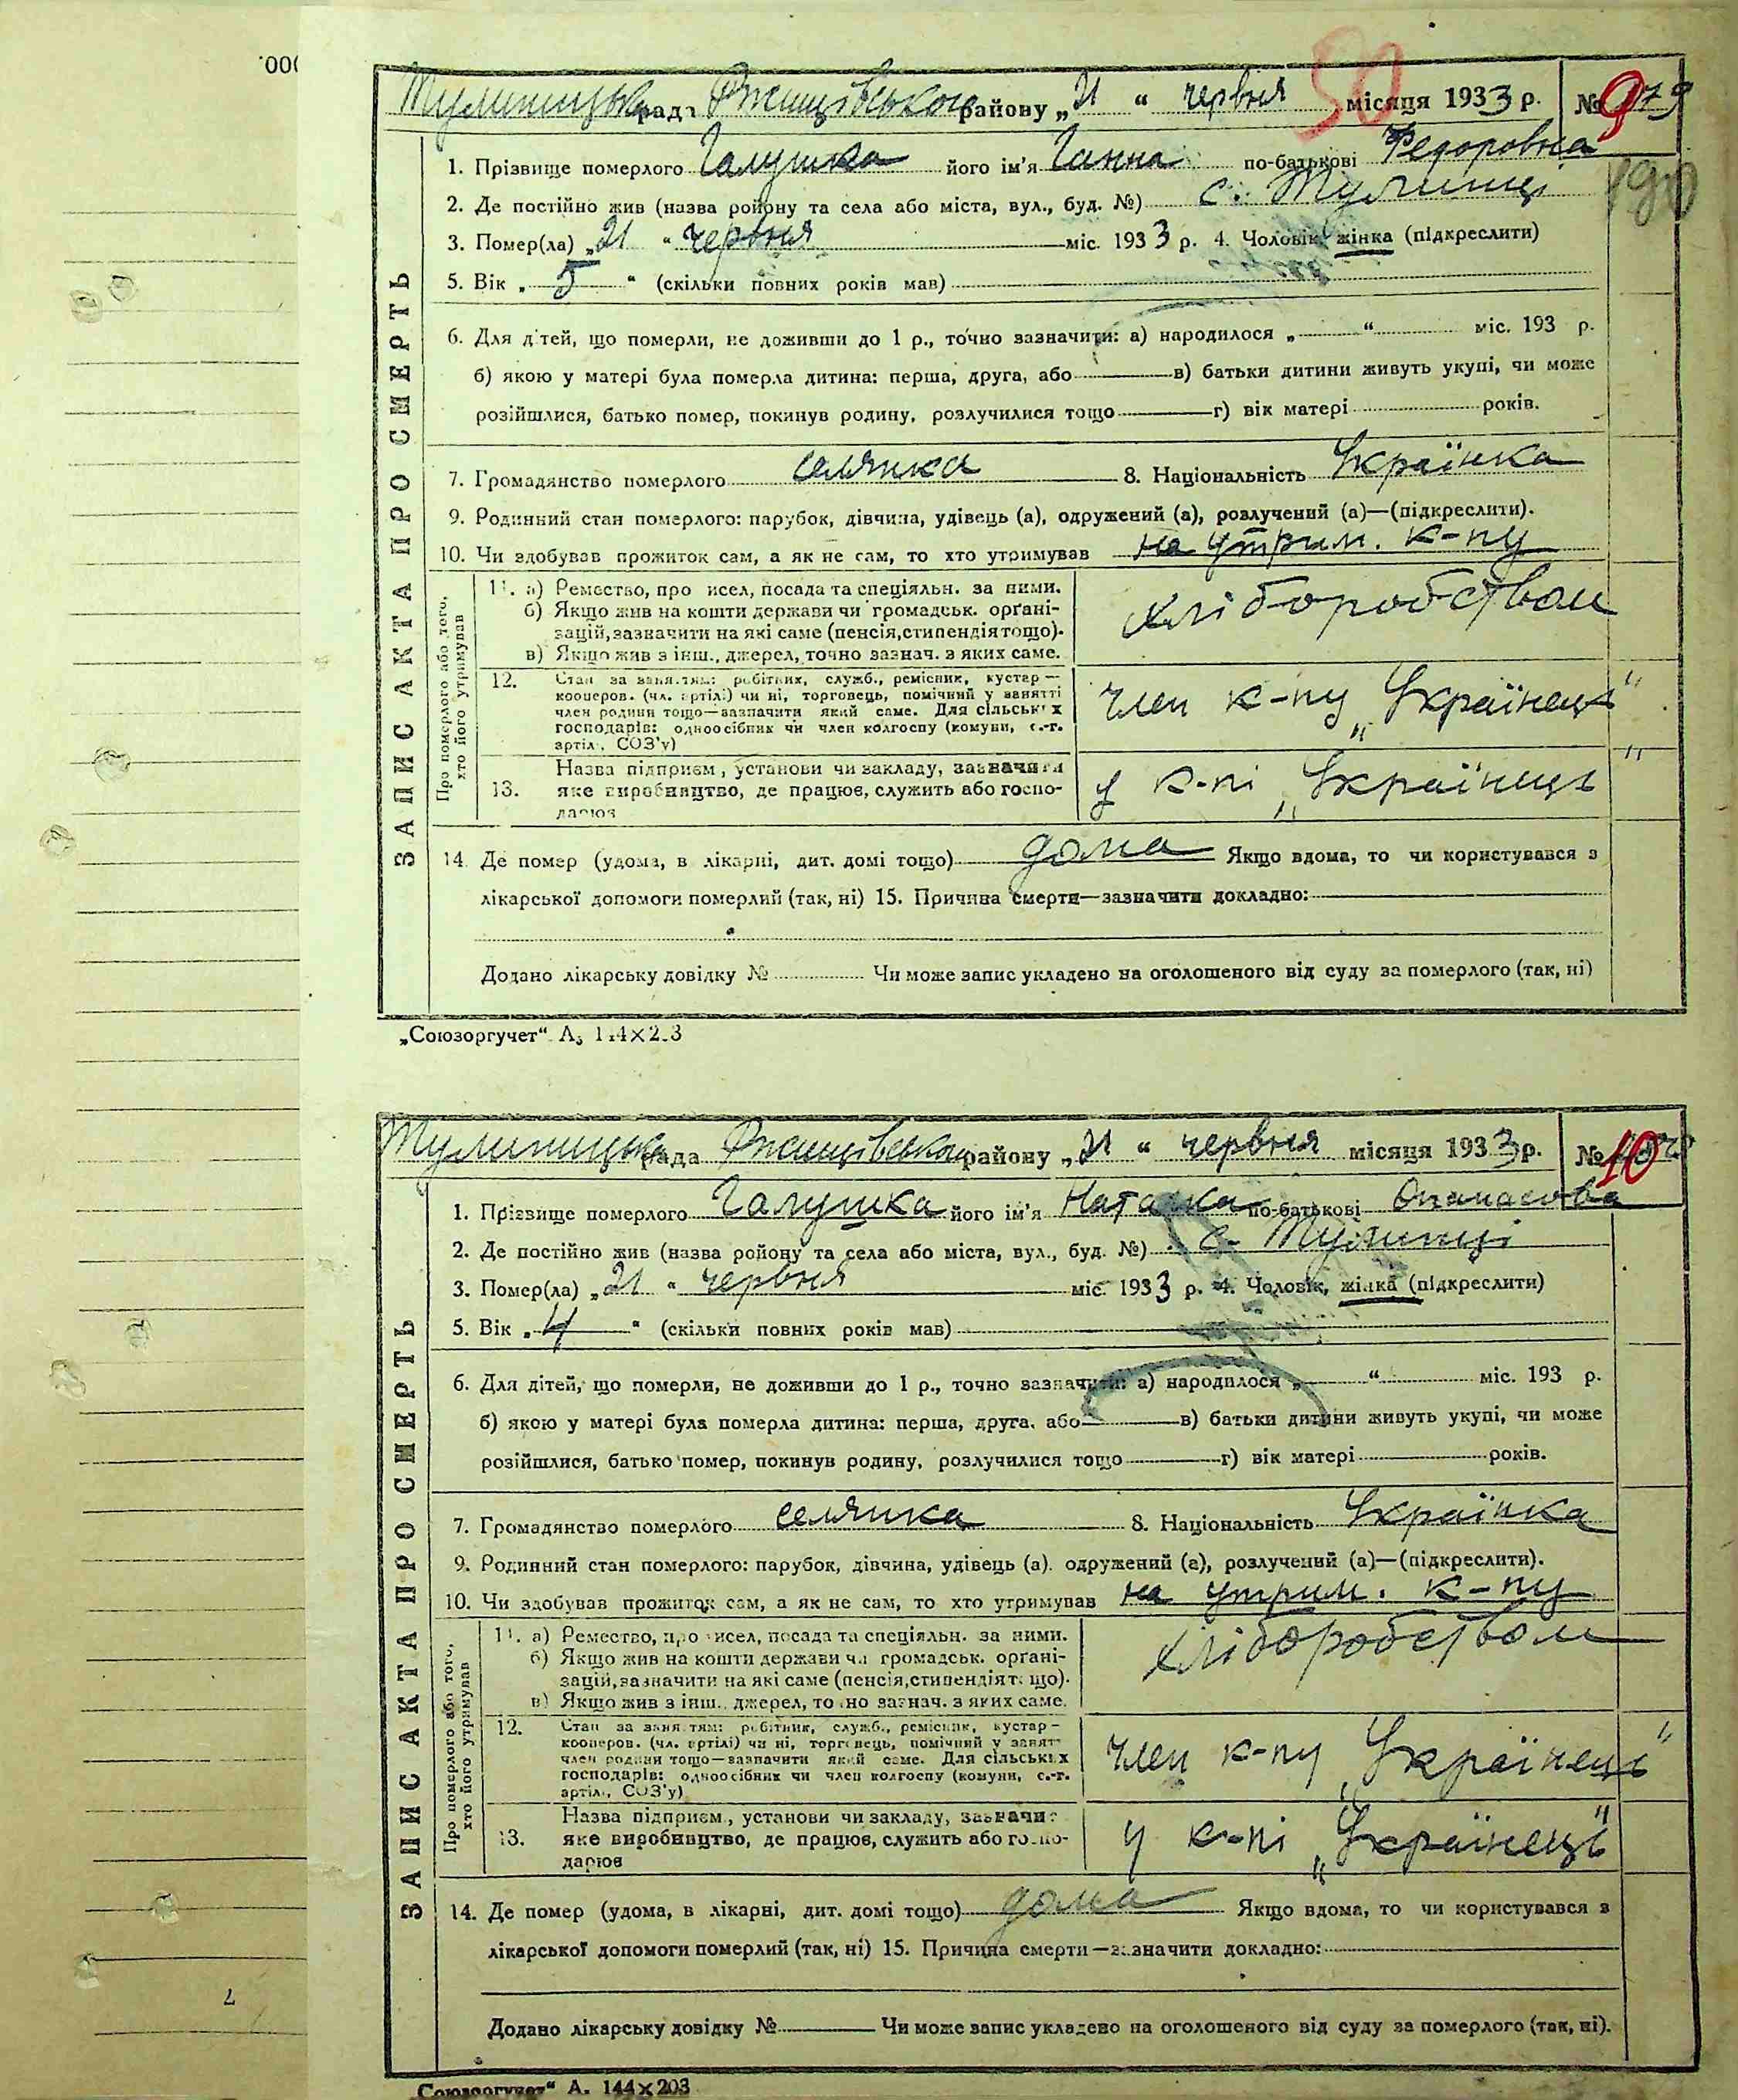 000
50
Тулиницька рада Ржищівського району „21 “ червня місяця 1933 р. № 9
190
1. Прізвище померлого Галушка його ім'я Ганна по-батькові Федоровна
2. Де постійно жив (назва ройону та села або міста, вул., буд. №) с. Тулинці
3. Помер(ла) „21 “ червня міс. 1933 р. 4. Чоловік, жінка (підкреслити)
5. Вік „ 5 “ (скільки повних років мав)
6. Для дітей, що померли, не доживши до 1 р., точно зазначити: а) народилося „ “ міс. 193 р.
б) якою у матері була померла дитина: перша, друга, або в) батьки дитини живуть укупі, чи може
розійшлися, батько помер, покинув родину, розлучилися тощо г) вік матері років.
7. Громадянство померлого селянка 8. Національність Українка
9. Родинний стан померлого: парубок, дівчина, удівець (а), одружений (а), розлучений (а)—(підкреслити).
10. Чи здобував прожиток сам, а як не сам, то хто утримував на утрим. к-пу
ЗАПИС АКТА ПРО СМЕРТЬ
Про померлого або того,
хто його утримував
11. а) Ремество, про исел, посада та спеціяльн. за ними.
б) Якщо жив на кошти держави чи громадськ. органі-
зацій, зазначити на які саме (пенсія, стипендія тощо).
в) Якщо жив з інш., джерел, точно зазнач. з яких саме.
хліборобством
12. Стан за заняттям: робітник, служб., ремісник, кустар—
кооперов. (чл. артілі) чи ні, торговець, помічний у занятті
член родини тощо—зазначити який саме. Для сільських
господарів: одноосібник чи член колгоспу (комуни, с.-г.
артіл., СОЗ'у)
член к-пу „Українець“
13. Назва підприєм, установи чи закладу, зазначити
яке виробництво, де працює, служить або госпо-
дарює
у к-пі „Українець“
14. Де помер (удома, в лікарні, дит. домі тощо) дома Якщо вдома, то чи користувався з
лікарської допомоги померлий (так, ні) 15. Причина смерти—зазначити докладно:
Додано лікарську довідку № Чи може запис укладено на оголошеного від суду за померлого (так, ні)
„Союзоргучет“ А
Тулиницька рада Ржищівського району „21 “ червня місяця 1933 р. № 10
1. Прізвище померлого Галушка його ім'я Наталка по-батькові Опанасова
2. Де постійно жив (назва ройону та села або міста, вул., буд. №) с. Тулинці
3. Помер(ла) „21 “ червня міс. 1933 р. 4. Чоловік, жінка (підкреслити)
5. Вік „ 4 “ (скільки повних років мав)
6. Для дітей, що померли, не доживши до 1 р., точно зазначити: а) народилося „ “ міс. 193 р.
б) якою у матері була померла дитина: перша, друга, або в) батьки дитини живуть укупі, чи може
розійшлися, батько помер, покинув родину, розлучилися тощо г) вік матері років.
7. Громадянство померлого селянка 8. Національність Українка
9. Родинний стан померлого: парубок, дівчина, удівець (а), одружений (а), розлучений (а)—(підкреслити).
10. Чи здобував прожиток сам, а як не сам, то хто утримував на утрим. к-пу
ЗАПИС АКТА ПРО СМЕРТЬ
Про померлого або того,
хто його утримував
11. а) Ремество, про исел, посада та спеціяльн. за ними.
б) Якщо жив на кошти держави чи громадськ. органі-
зацій, зазначити на які саме (пенсія, стипендія тощо).
в) Якщо жив з інш., джерел, точно зазнач. з яких саме.
хліборобством
12. Стан за заняттям: робітник, служб., ремісник, кустар—
кооперов. (чл. артілі) чи ні, торговець, помічний у занятт
член родини тощо—зазначити який саме. Для сільських
господарів: одноосібник чи член колгоспу (комуни, с.-г.
артіл., СОЗ'у)
член к-пу „Українець“
13. Назва підприєм, установи чи закладу, зазначити
яке виробництво, де працює, служить або госпо-
дарює
у к-пі „Українець“
14. Де помер (удома, в лікарні, дит. домі тощо) дома Якщо вдома, то чи користувався з
лікарської допомоги померлий (так, ні) 15. Причина смерти—зазначити докладно:
Додано лікарську довідку № Чи може запис укладено на оголошеного від суду за померлого (так, ні).
„Союзоргучет“ А. 144×203